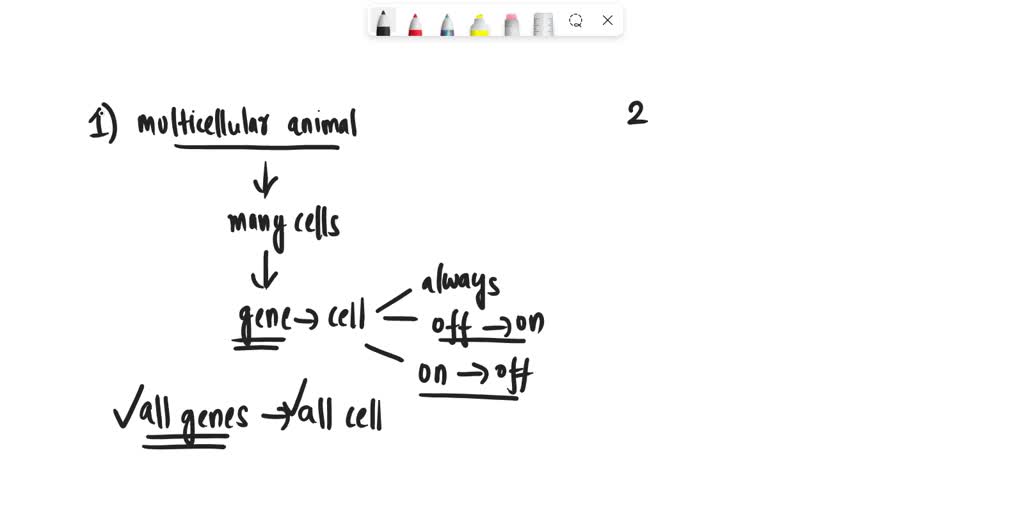 1) multicellular animal
2
↓
many cells
↓
gene → cell
always
off → on
on → off
✓all genes → ✓all cell